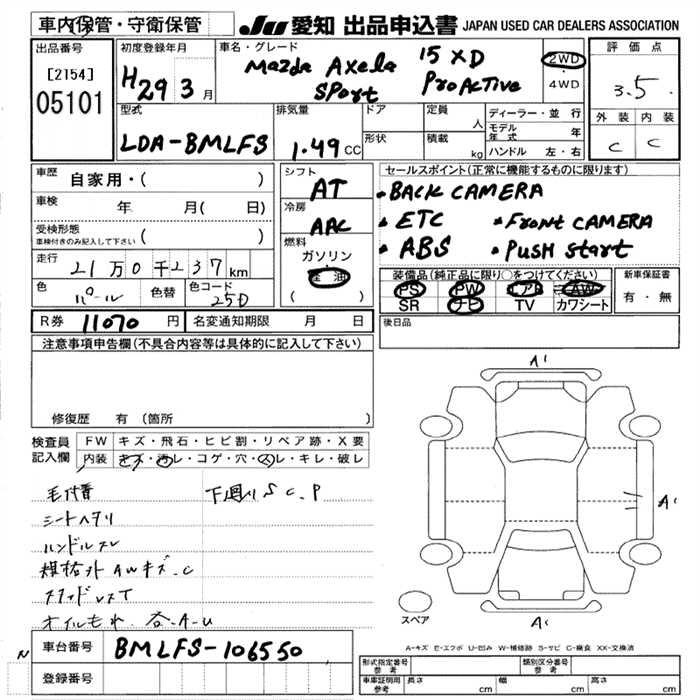 車内保管・守衛保管
JU 愛知 出品申込書 JAPAN USED CAR DEALERS ASSOCIATION
出品番号
[2154]
05101
初度登録年月
H29 3月
車名・グレード
Mazda Axela 15XD
SPort ProActive
2WD
・
4WD
評価点
3.5
外装 内装
C C
型式
LDA-BMLFS
排気量
1.49CC
ドア
形状
定員
人
積載
kg
ディーラー・並行
モデル年式 年
ハンドル 左・右
車歴
自家用・( )
車検
年 月( 日)
受検形態
車検付きのみ記入して下さい ( )
走行
21万0千237km
色 パール
色替
色コード 25D
シフト
AT
冷房
AAC
燃料
ガソリン
軽油
( )
セールスポイント(正常に機能するものに限ります)
・BACK CAMERA
・ETC ・Front CAMERA
・ABS ・PusH Start
装備品(純正品に限り○をつけてください)
PS PW エアB AW
SR ナビ TV カワシート
新車保証書
有・無
後日品
R券 11070円
名変通知期限 月 日
注意事項申告欄(不具合内容等は具体的に記入して下さい)
修復歴 有 (箇所
検査員記入欄
FW キズ・飛石・ヒビ割・リペア跡・X要
内装 キズ・汚レ・コゲ・穴・スレ・キレ・破レ
毛付着 下廻りS C.P
シートヘタリ
ハンドルスレ
規格外AWキズ.C
オイルもれ 各A-U
A'
A'
A'
スペア
A-キズ E-エクボ U-凹み W-補修跡 S-サビ C-腐食 XX-交換済
N
車台番号 BMLFS-106550
登録番号
形式指定番号 参考
類別区分番号 参考
車車証明用 参考
長さ cm
幅 cm
高さ cm